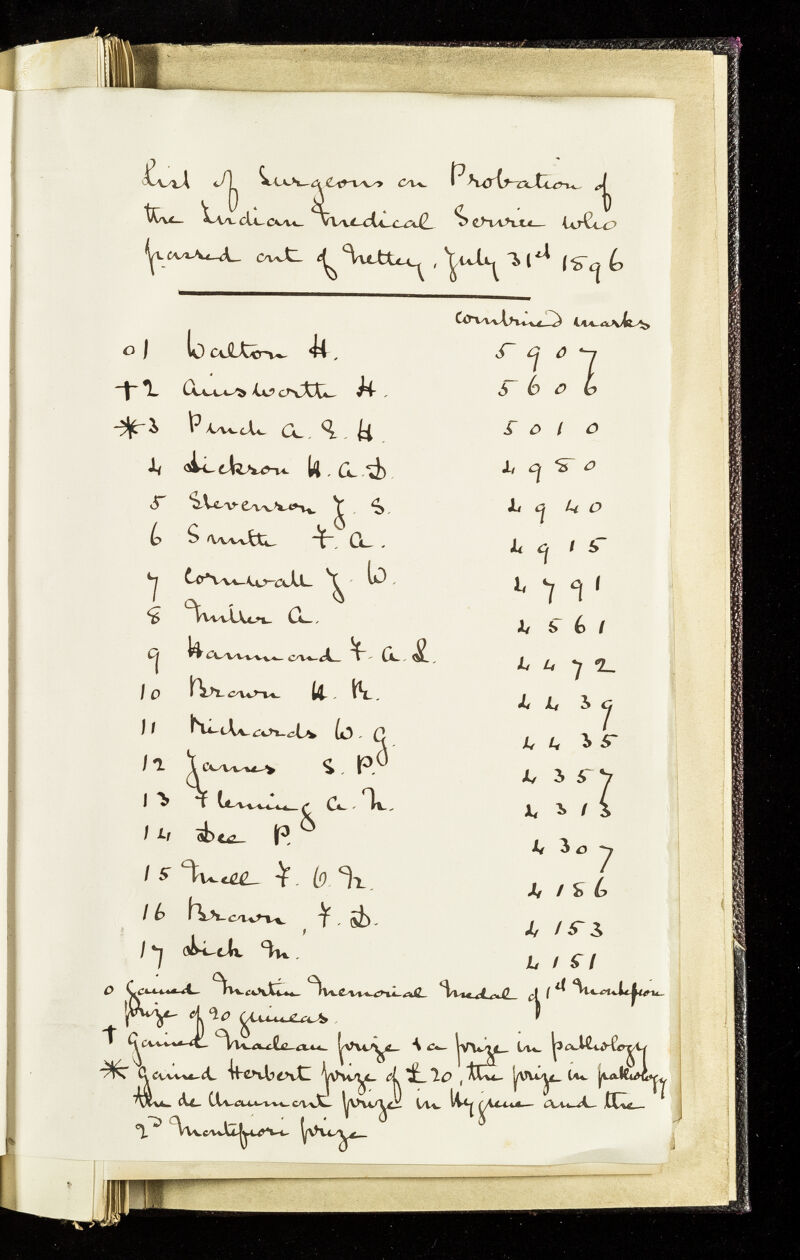 List of Surgeons on Probation of
the Indian Medical Service who
passed out of Netley, July 31st 1896
combined marks
o 1 Walton H. 5907
† 2 Ainsworth H. 5606
* 3 Pinch A. E. H. 5010
4 Dickson H. A. D. 4980
5 Stevenson J. S. 4940
6 Smith F. A. 4915
7 Cornwall J. W. 4791
8 Miller A. 4561
9 Hammond F. A. L. 4472
10 Brown H. R. 4439
11 Richards W. G. 4435
12 James S. P. 4357
13 Fleming A. N. 4313
14 Dee P. 4307
15 Mell F. O. N. 4186
16 Brown, F. D. 4153
17 Dick M. 4151
o gained Martin Memorial Medal & 1st Montefiore
prize of 20 guineas.
† gained Maclean prize & a prize in pathology
* gained Herbert prize of £20, the prize in pathology
the de Chaumont prize in Hygiene and the
2D Montefiori prize